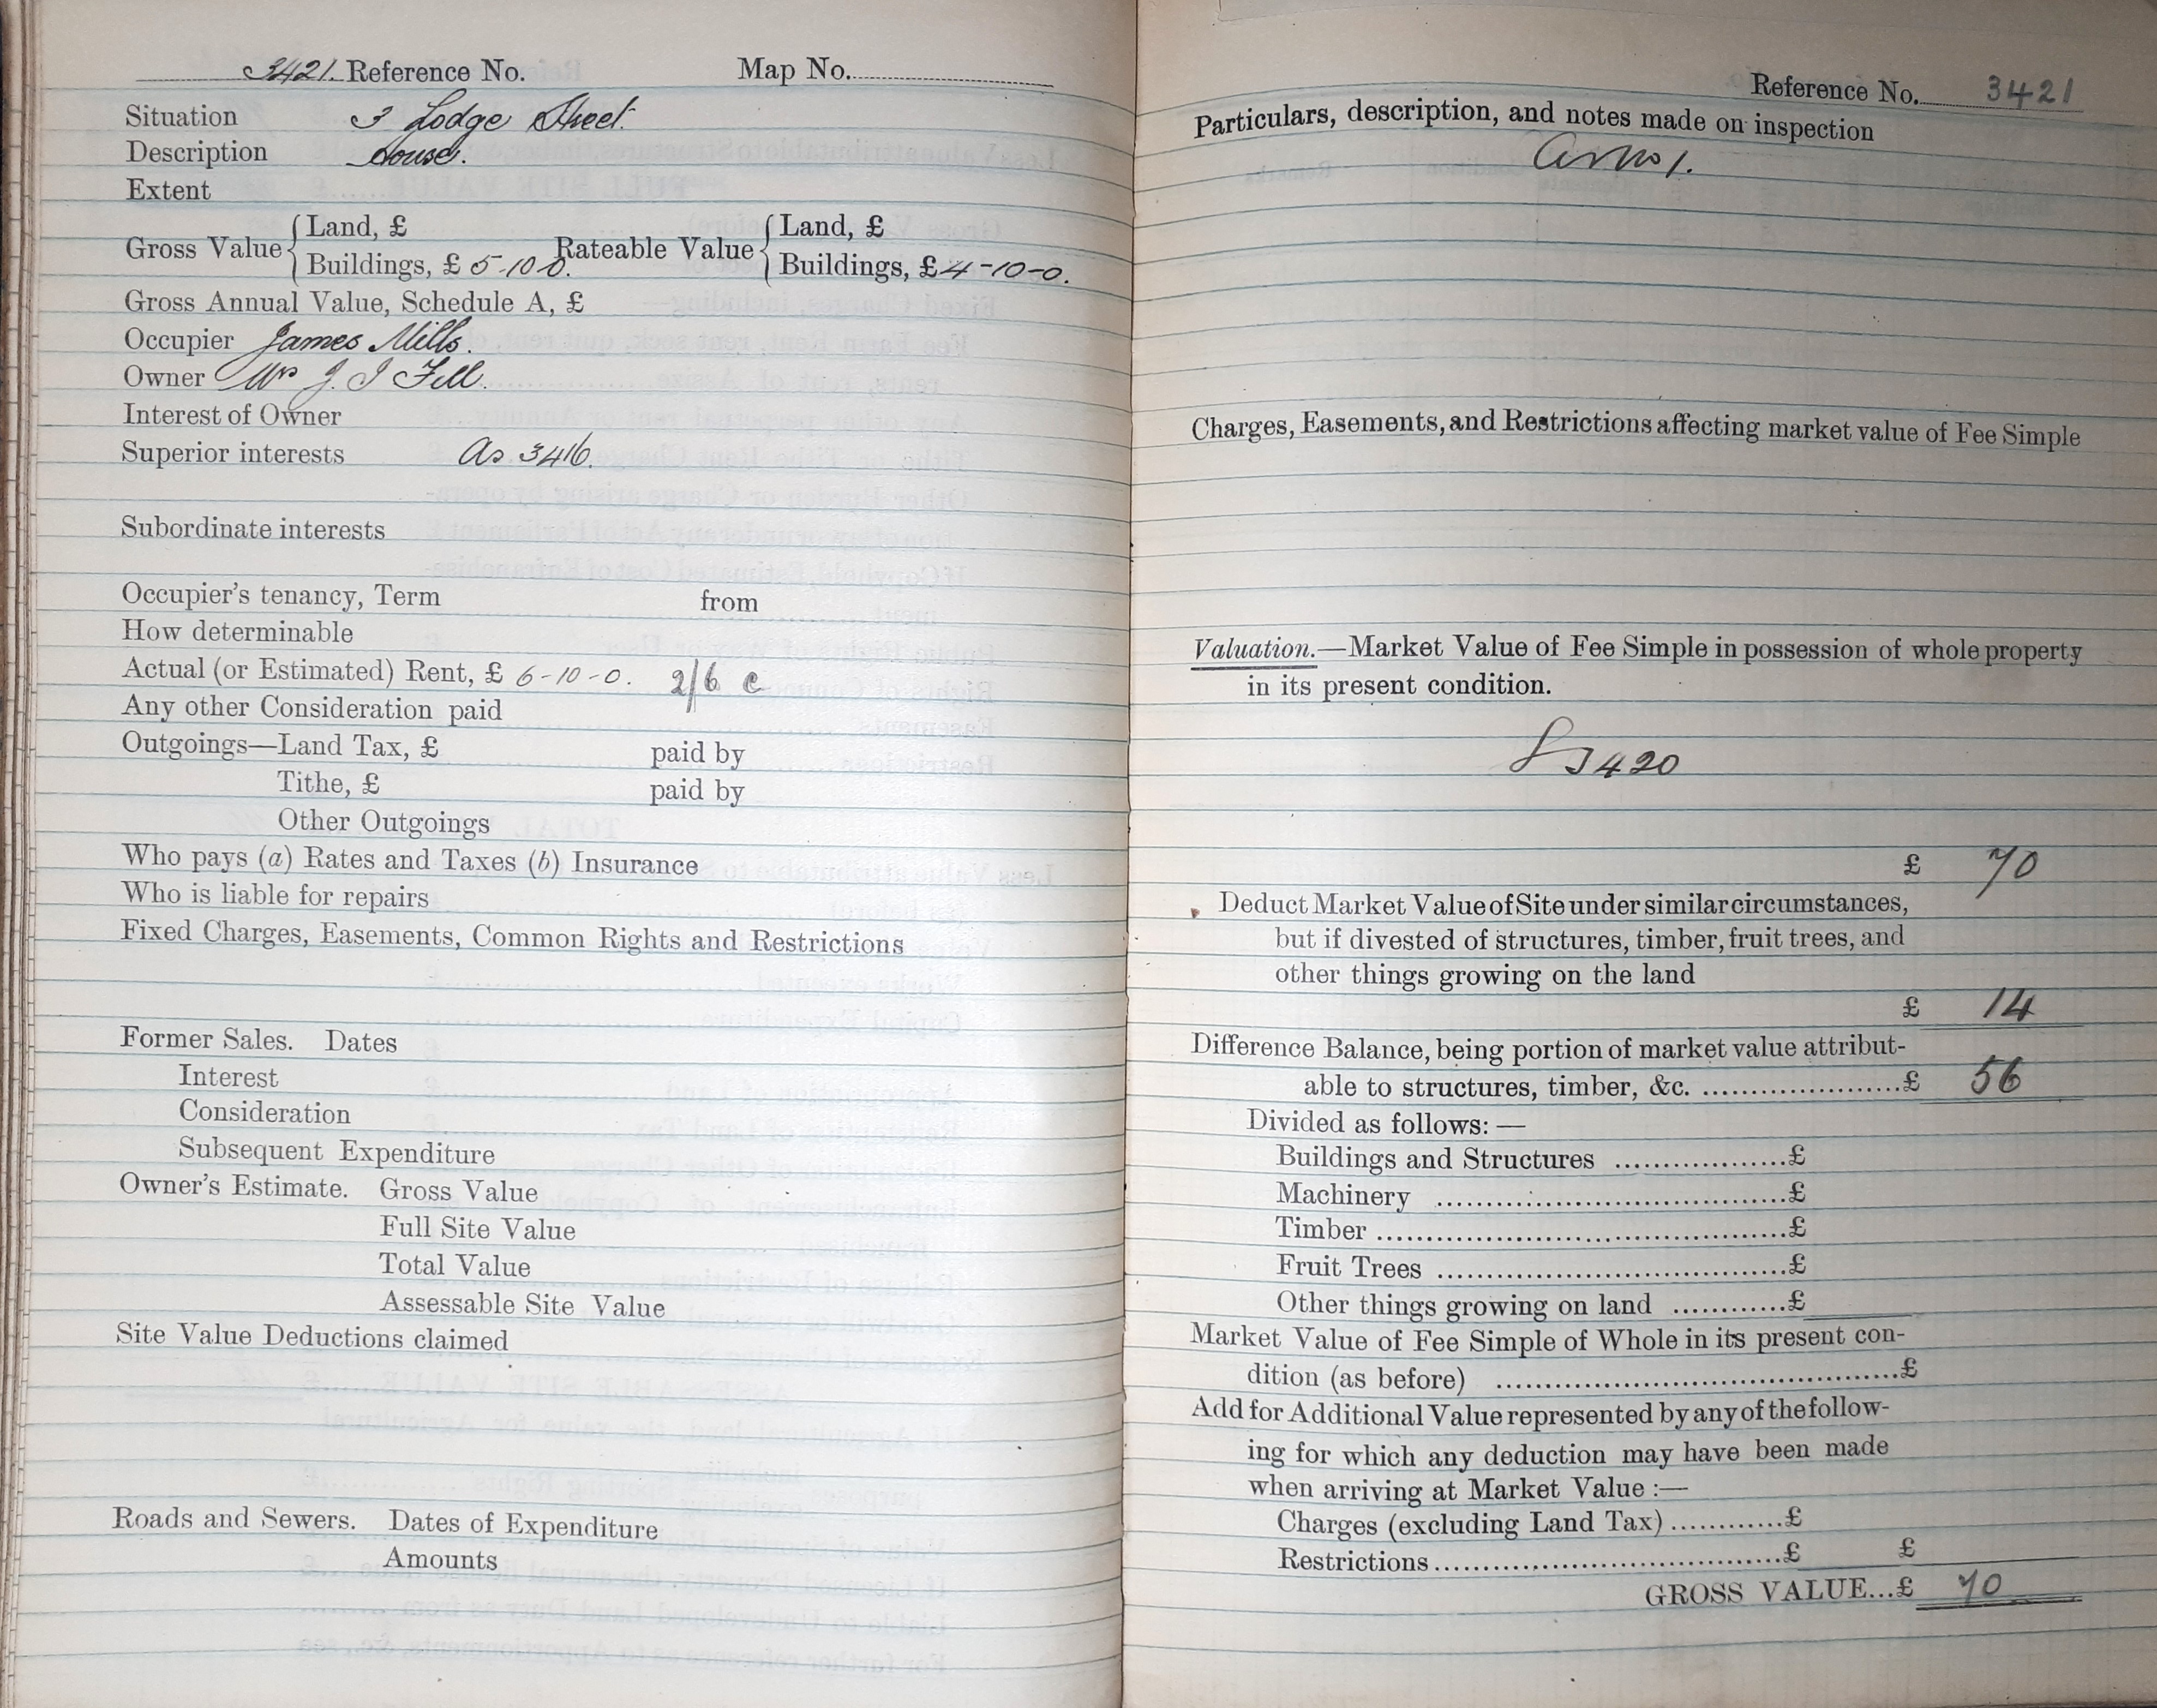 3421. Reference No. Map No.
Situation 3 Lodge Street.
Description House.
Extent
Gross Value { Land, £ Rateable Value { Land, £
Buildings, £ 5-10-0. Buildings, £ 4-10-0.
Gross Annual Value, Schedule A, £
Occupier James Mills.
Owner Mrs J. J Fell.
Interest of Owner
Superior interests As 3416.
Subordinate interests
Occupier's tenancy, Term from
How determinable
Actual (or Estimated) Rent, £ 6-10-0. 2/6 c
Any other Consideration paid
Outgoings—Land Tax, £ paid by
Tithe, £ paid by
Other Outgoings
Who pays (a) Rates and Taxes (b) Insurance
Who is liable for repairs
Fixed Charges, Easements, Common Rights and Restrictions
Former Sales. Dates
Interest
Consideration
Subsequent Expenditure
Owner's Estimate. Gross Value
Full Site Value
Total Value
Assessable Site Value
Site Value Deductions claimed
Roads and Sewers. Dates of Expenditure
Amounts
Reference No. 3421
Particulars, description, and notes made on inspection
as no 1.
Charges, Easements, and Restrictions affecting market value of Fee Simple
Valuation.—Market Value of Fee Simple in possession of whole property
in its present condition.
3420
£ 70
Deduct Market Value of Site under similar circumstances,
but if divested of structures, timber, fruit trees, and
other things growing on the land
£ 14
Difference Balance, being portion of market value attribut-
able to structures, timber, &c. ....................£ 56
Divided as follows: —
Buildings and Structures ..................£
Machinery .....................................£
Timber ...........................................£
Fruit Trees .....................................£
Other things growing on land ............£
Market Value of Fee Simple of Whole in its present con-
dition (as before) ...........................................£
Add for Additional Value represented by any of the follow-
ing for which any deduction may have been made
when arriving at Market Value :—
Charges (excluding Land Tax) ............£
Restrictions ......................................£ £
GROSS VALUE...£ 70